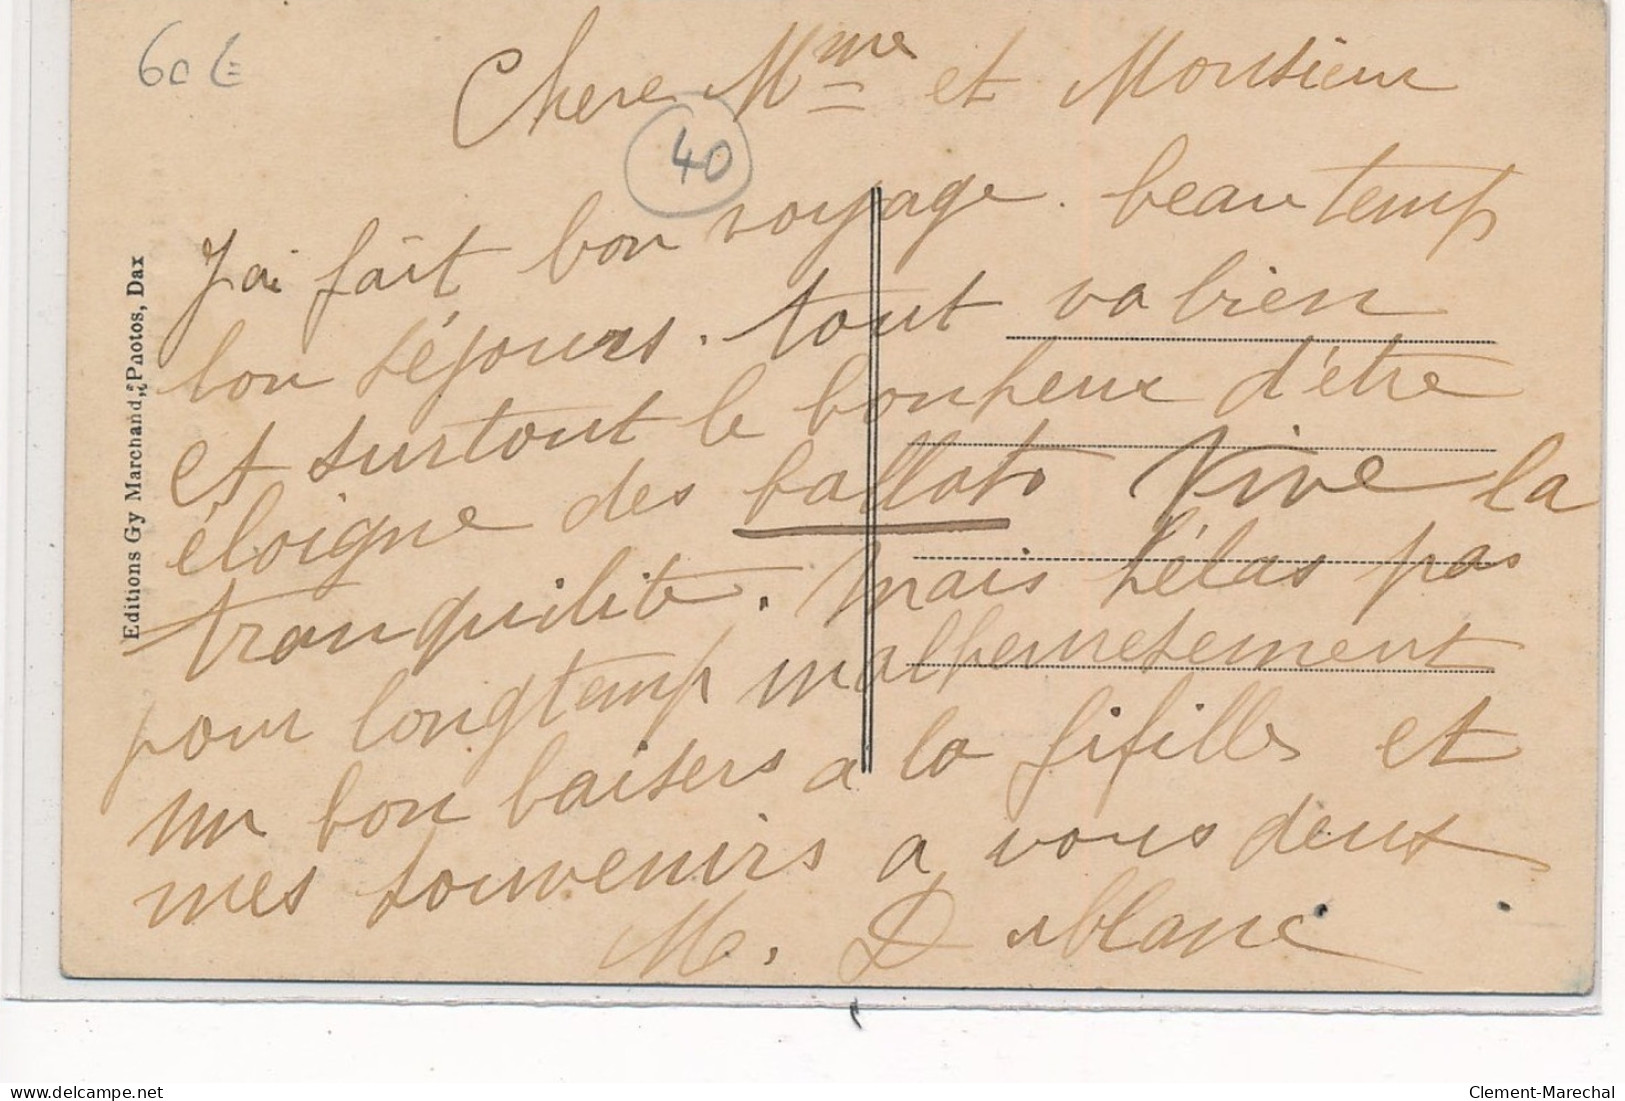 60 E
Chere Mme et Monsieur
40
J'ai fait bon voyage. beau temp
bon séjours. tout va bien
et surtout le bonheur d'être
éloigne des ballots Vive la
tranquilite. Mais hélas pas
pour longtemp malheuresement
un bon baisers a la fifille et
mes souvenirs a vous deux
M. Dublanc
Editions Gy Marchand, Photos, Dax
delcampe.net
Clement-Marechal